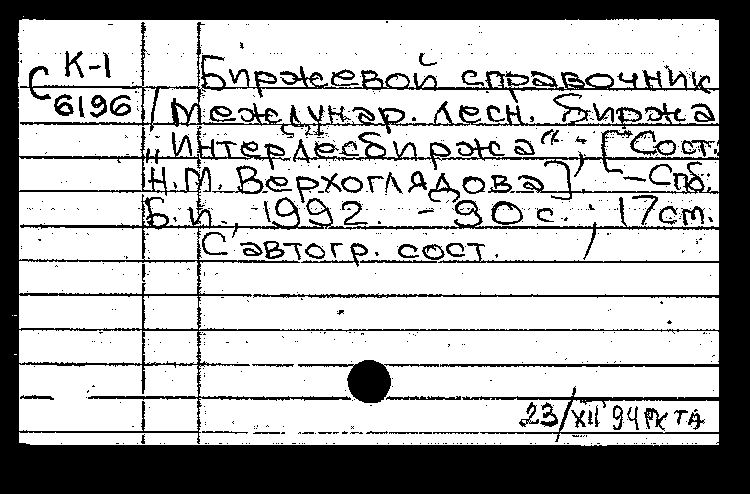 С К-1
6196
Биржевой справочник
/ Междунар. лесн. биржа
„Интерлесбиржа“; [Сост.
Н.М. Верхоглядова]. – Спб:
Б.и., 1992. – 90 с.; 17 см.
С автогр. сост.
23/XII 94